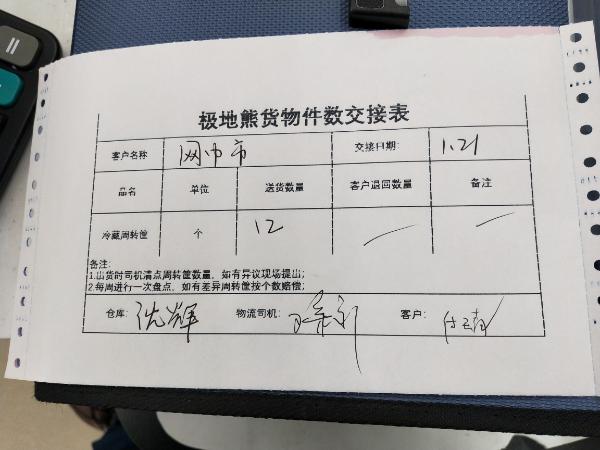 极地熊货物件数交接表
客户名称 交接日期： 1.21
品名 单位 送货数量 客户退回数量 备注
冷藏周转筐 个 12 — —
备注：
1.出货时司机清点周转筐数量，如有异议现场提出；
2.每周进行一次盘点，如有差异周转筐按个数赔偿；
仓库： 沈辉 物流司机： 客户：